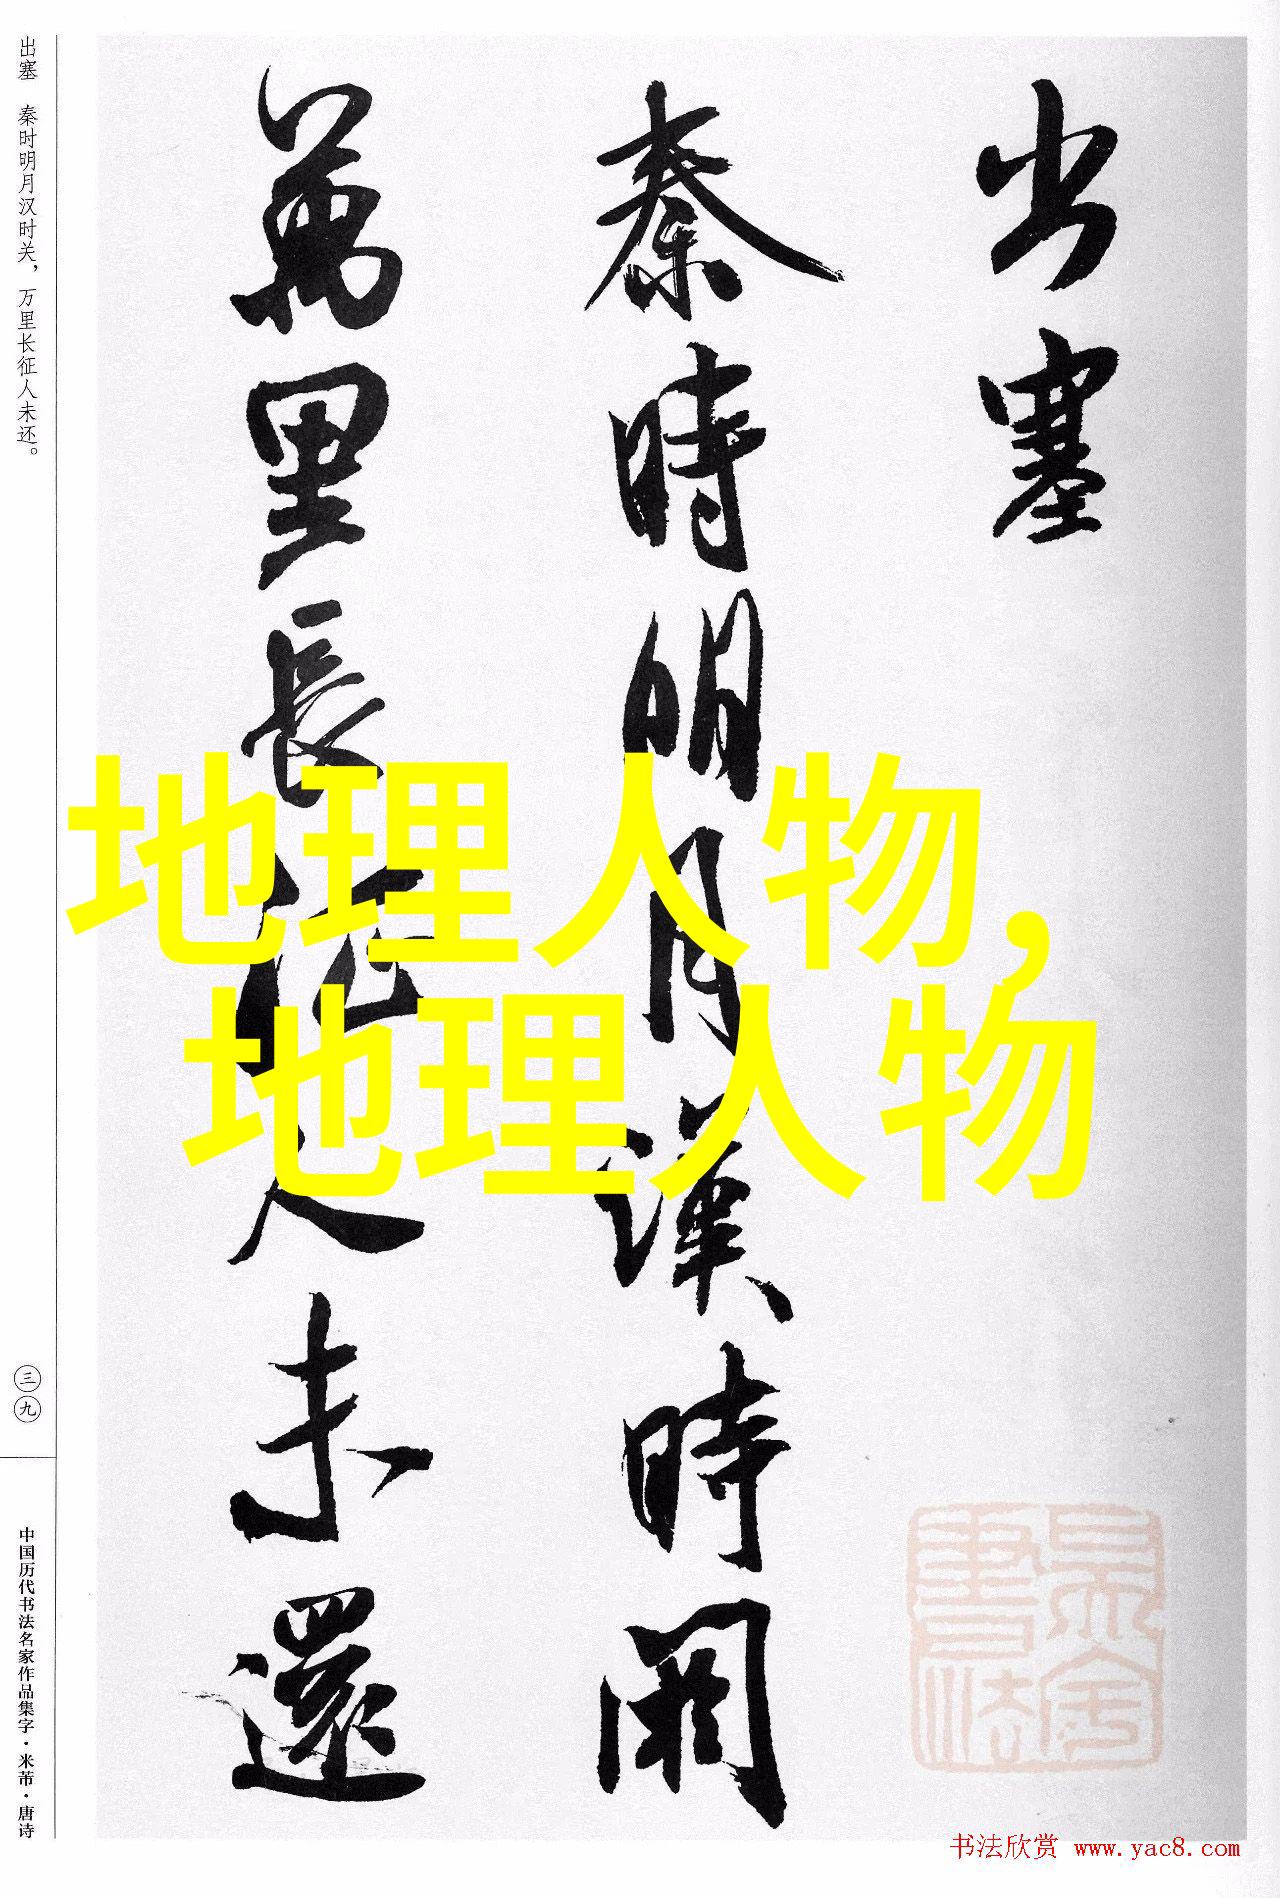 出塞 秦时明月汉时关，万里长征人未还。
三九
中国历代书法名家作品集字·米芾·唐诗
出塞
秦時明月漢時関
萬里長征人未還
地理人物，
地理人物
书法欣赏 www.yac8.com